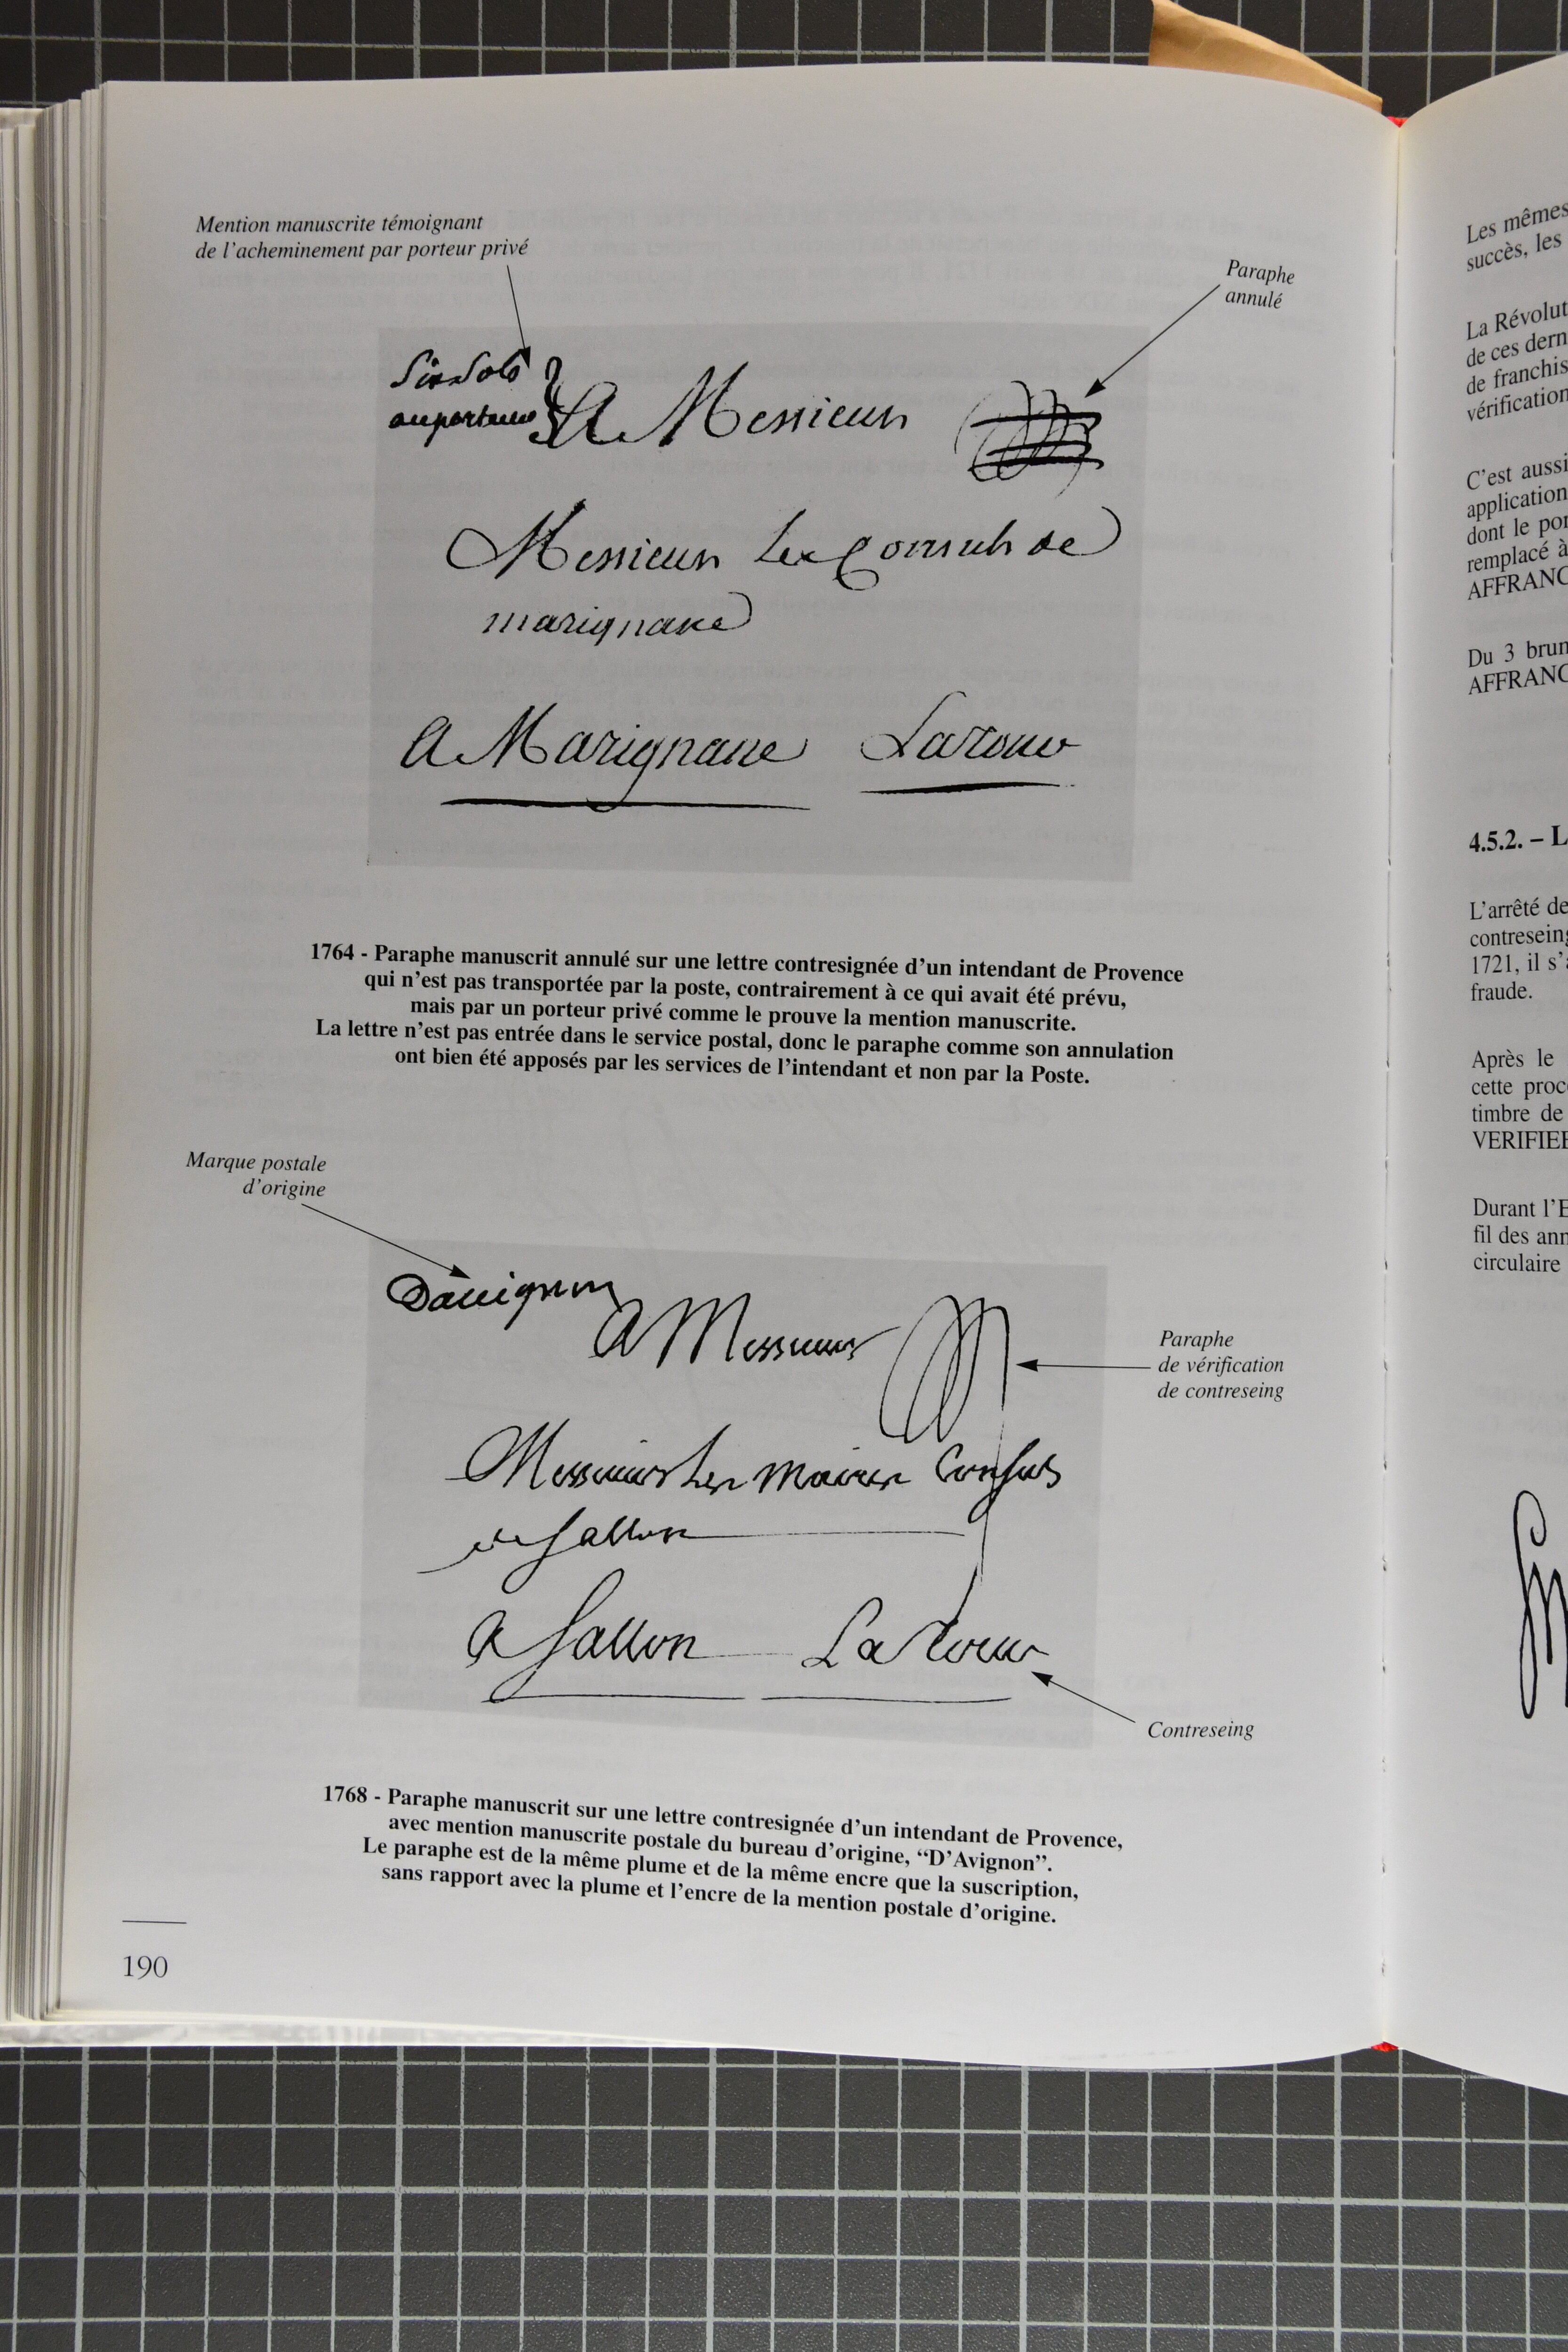 Mention manuscrite témoignant
de l'acheminement par porteur privé
Paraphe
annulé
Six Sols
au porteur
A Messieurs
Messieurs Les Consuls de
marignane
A Marignane Latour
1764 - Paraphe manuscrit annulé sur une lettre contresignée d'un intendant de Provence
qui n'est pas transportée par la poste, contrairement à ce qui avait été prévu,
mais par un porteur privé comme le prouve la mention manuscrite.
La lettre n'est pas entrée dans le service postal, donc le paraphe comme son annulation
ont bien été apposés par les services de l'intendant et non par la Poste.
Marque postale
d'origine
Davignon
A Messieurs
Paraphe
de vérification
de contreseing
Messieurs Les maires Consuls
de Sallon
A Sallon La Tour
Contreseing
1768 - Paraphe manuscrit sur une lettre contresignée d'un intendant de Provence,
avec mention manuscrite postale du bureau d'origine, “D'Avignon”.
Le paraphe est de la même plume et de la même encre que la suscription,
sans rapport avec la plume et l'encre de la mention postale d'origine.
190
Les mêmes
succès, les
La Révolut
de ces dern
de franchis
vérification
C'est aussi
application
dont le por
remplacé à
AFFRANC
Du 3 brun
AFFRANC
4.5.2. – L
L'arrêté de
contreseing
1721, il s'a
fraude.
Après le
cette proc
timbre de
VERIFIEE
Durant l'E
fil des ann
circulaire